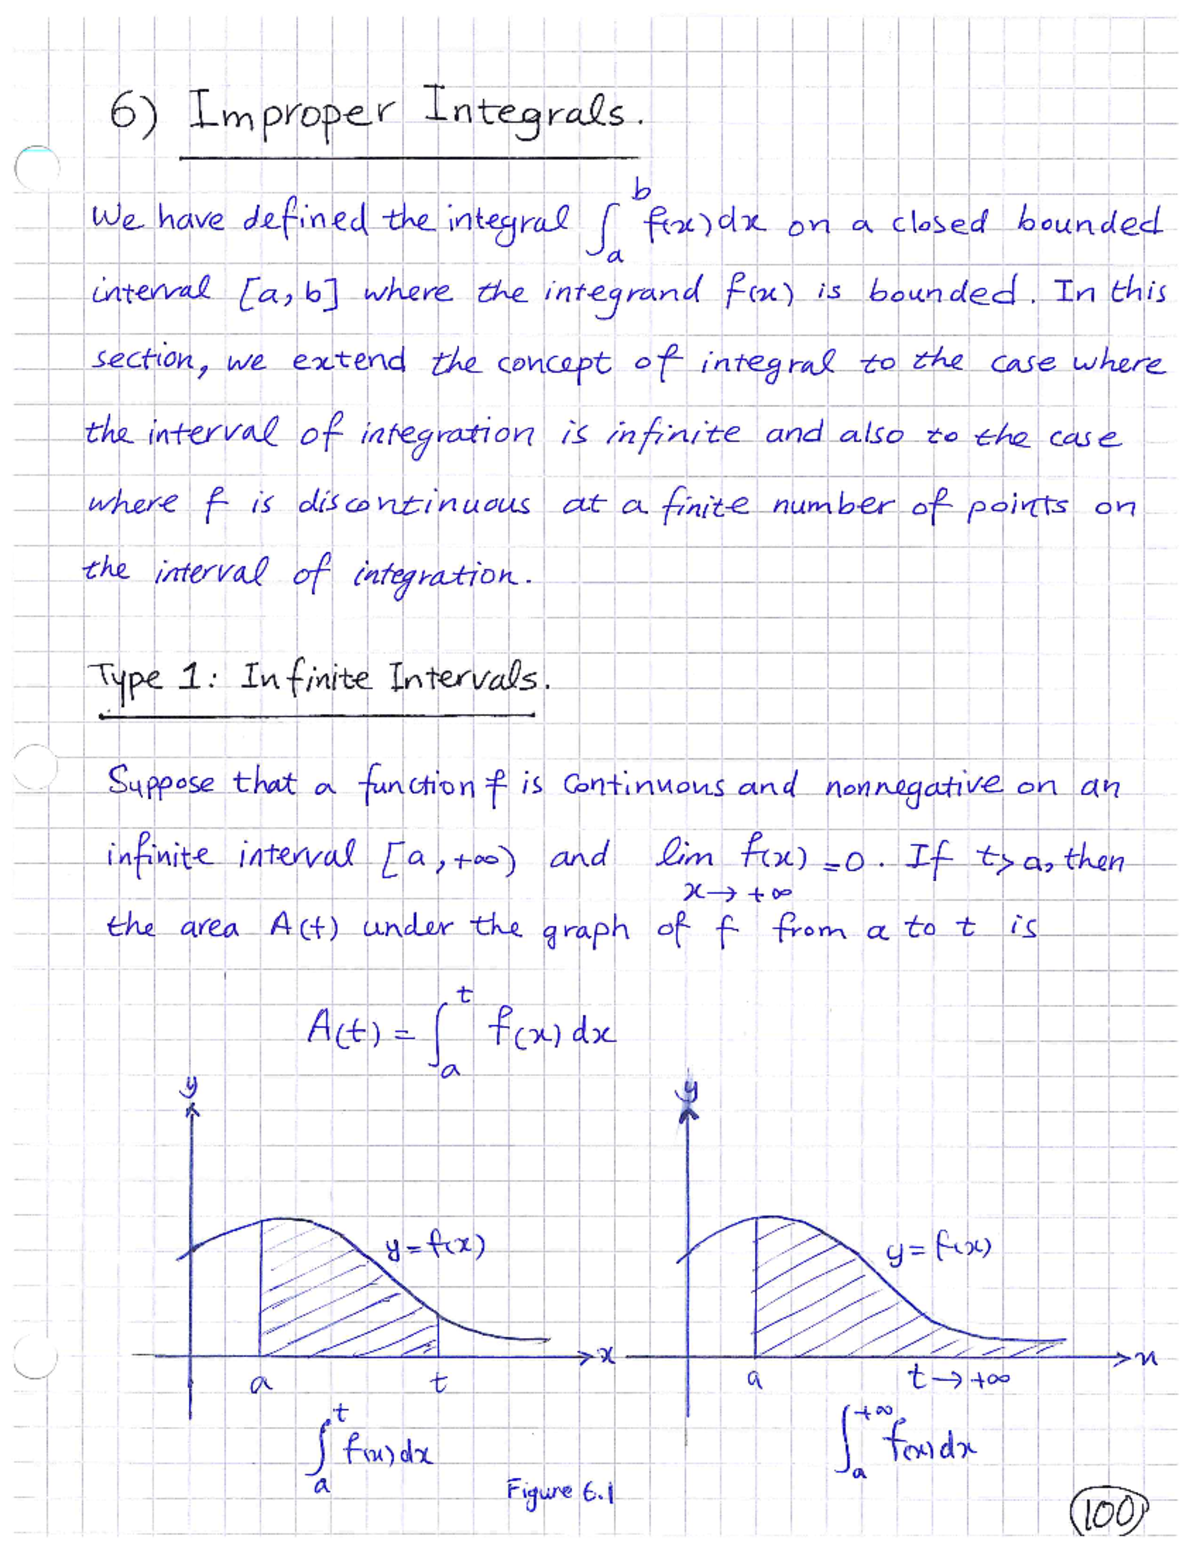 6) Improper Integrals.
We have defined the integral ∫_a^b f(x)dx on a closed bounded
interval [a,b] where the integrand f(x) is bounded. In this
section, we extend the concept of integral to the case where
the interval of integration is infinite and also to the case
where f is discontinuous at a finite number of points on
the interval of integration.
Type 1: Infinite Intervals.
Suppose that a function f is continuous and nonnegative on an
infinite interval [a,+∞) and lim_{x→+∞} f(x)=0. If t>a, then
the area A(t) under the graph of f from a to t is
A(t) = ∫_a^t f(x) dx
y
y=f(x)
x
a t
∫_a^t f(x)dx
y
y=f(x)
x
a t→+∞
∫_a^{+∞} f(x)dx
Figure 6.1
100